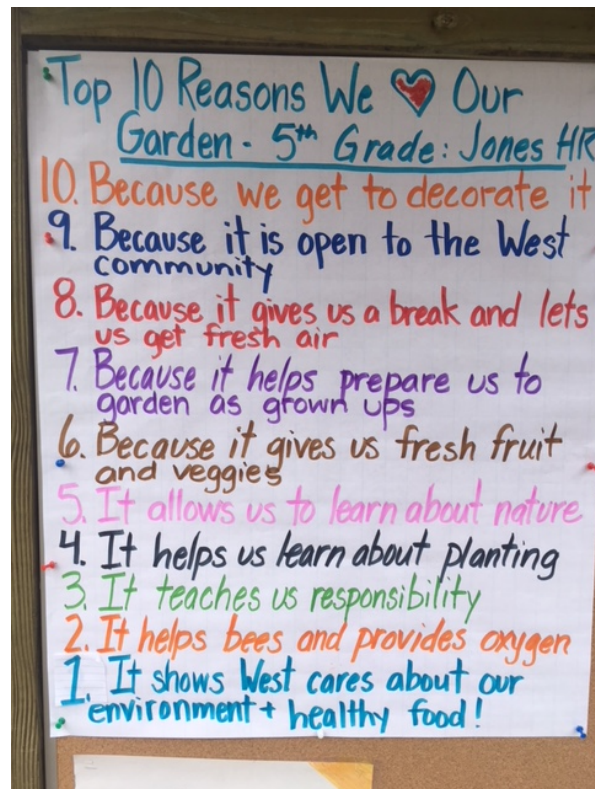 Top 10 Reasons We ❤ Our
Garden - 5th Grade: Jones HR
10. Because we get to decorate it
9. Because it is open to the West
community
8. Because it gives us a break and lets
us get fresh air
7. Because it helps prepare us to
garden as grown ups
6. Because it gives us fresh fruit
and veggies
5. It allows us to learn about nature
4. It helps us learn about planting
3. It teaches us responsibility
2. It helps bees and provides oxygen
1. It shows West cares about our
environment + healthy food!